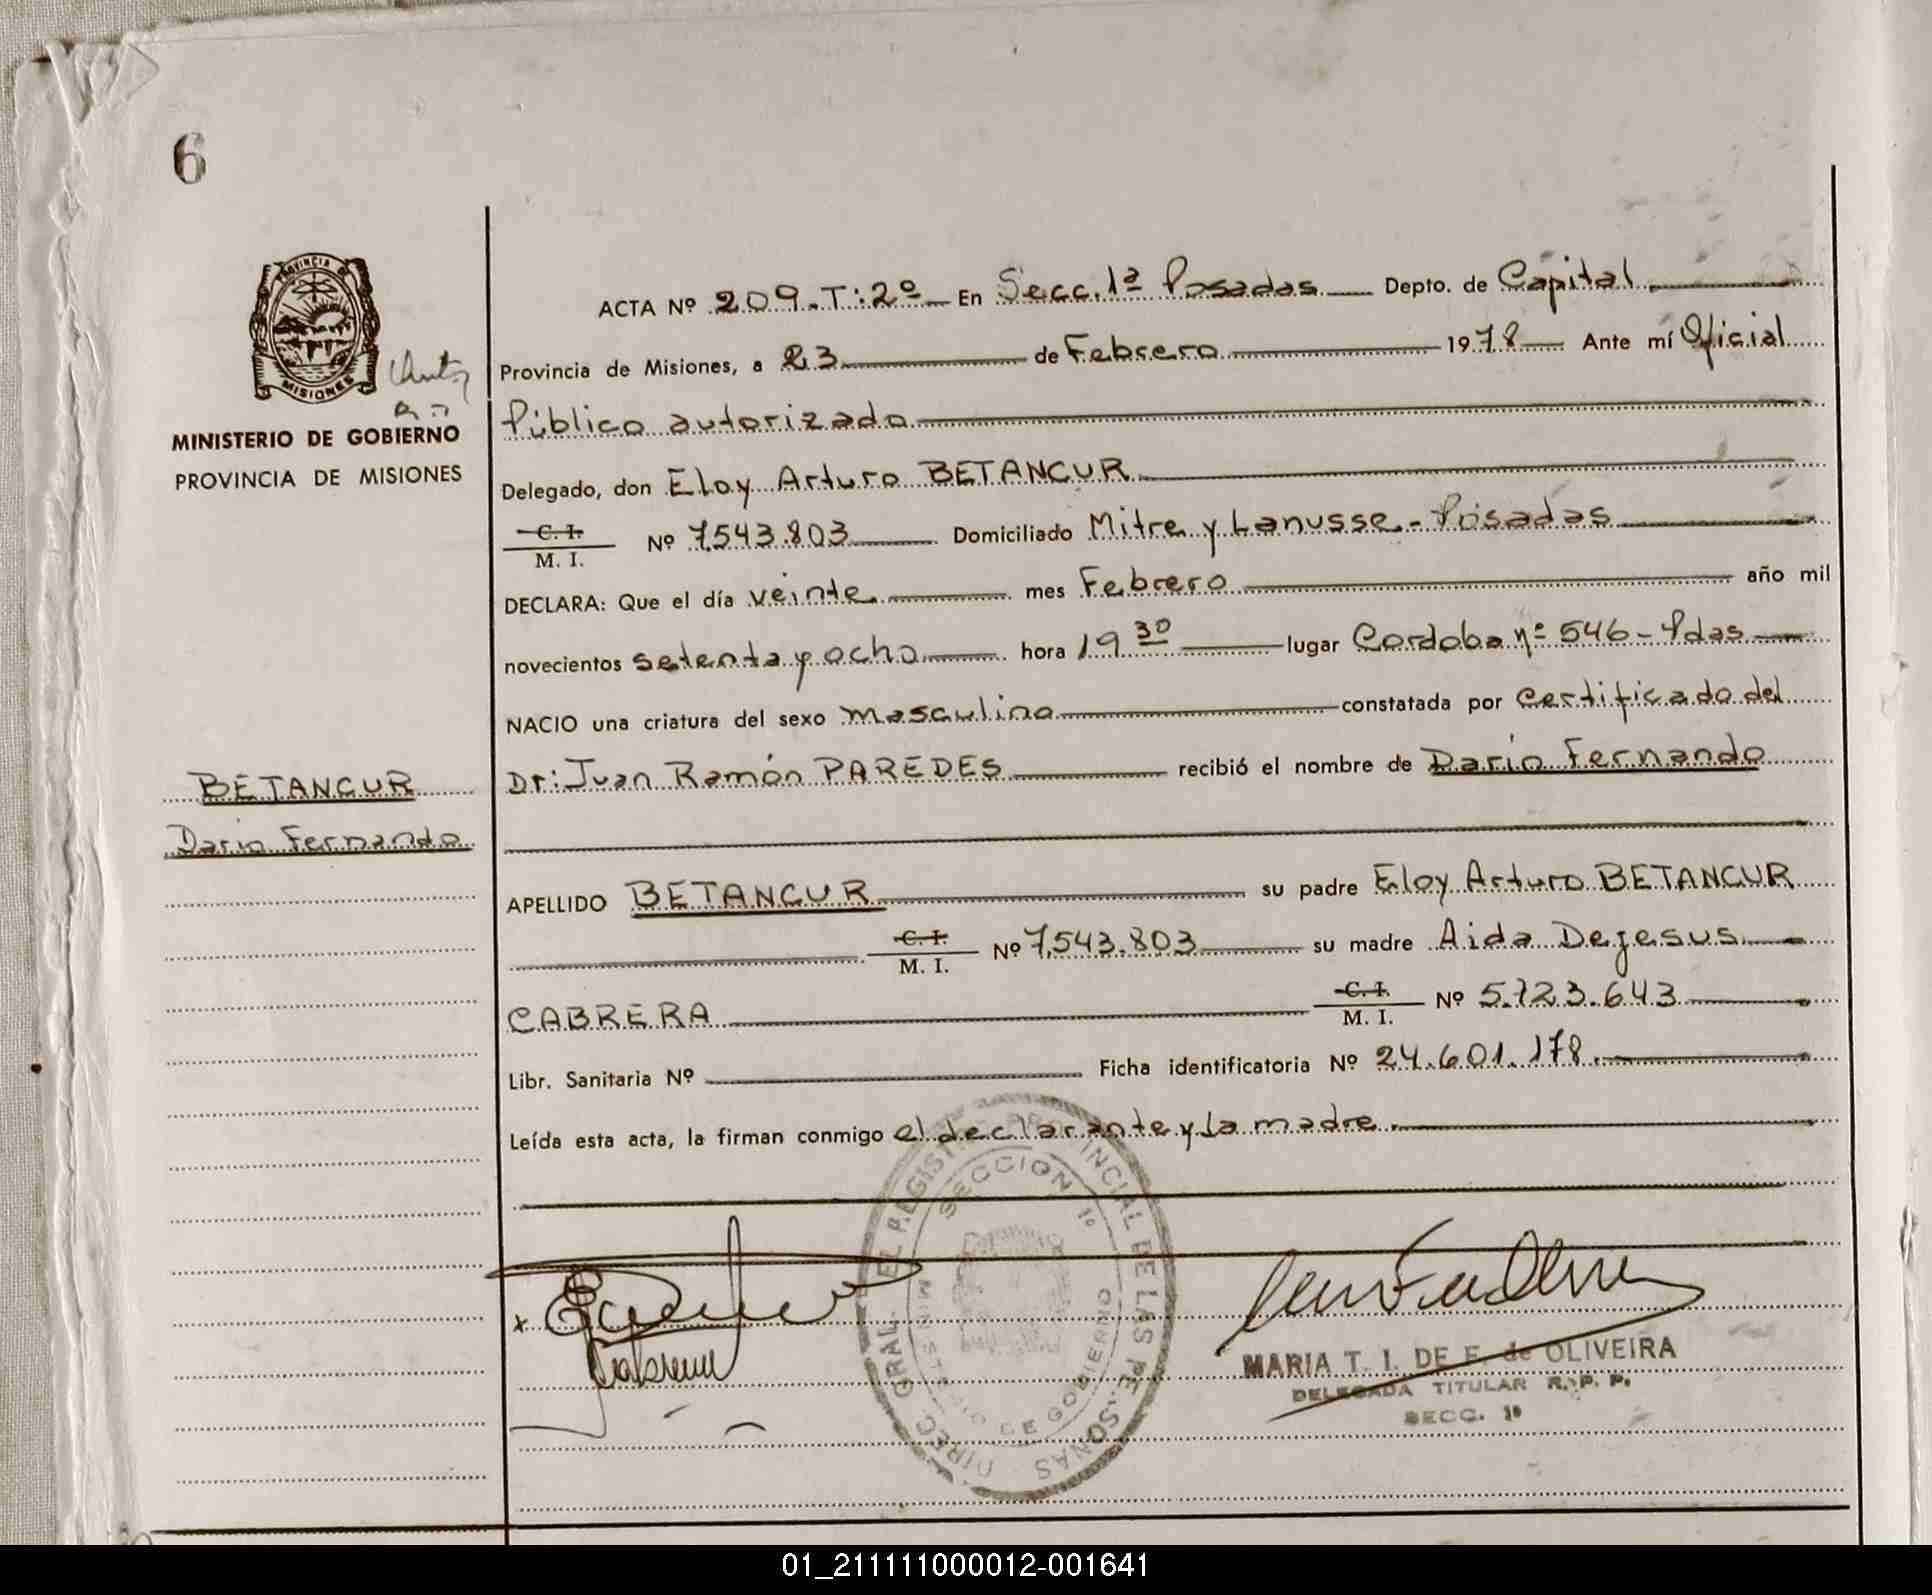 6
PROVINCIA DE
MISIONES
MINISTERIO DE GOBIERNO
PROVINCIA DE MISIONES
BETANCUR
Dario Fernando
ACTA Nº 209.T:2º En Secc. 1ª Posadas Depto. de Capital
Provincia de Misiones, a 23 de Febrero 1978 Ante mí Oficial
Público autorizado
Delegado, don Eloy Arturo BETANCUR
C. I.
M. I. Nº 7.543.803 Domiciliado Mitre y Lanusse - Posadas
DECLARA: Que el día veinte mes Febrero año mil
novecientos setenta y ocho hora 19 30 lugar Cordoba nº 546 - Pdas
NACIO una criatura del sexo masculino constatada por certificado del
Dr: Juan Ramón PAREDES recibió el nombre de Dario Fernando
APELLIDO BETANCUR su padre Eloy Arturo BETANCUR
C. I.
M. I. Nº 7.543.803 su madre Aida Dejesus
CABRERA C. I.
M. I. Nº 5.723.643
Libr. Sanitaria Nº Ficha identificatoria Nº 24.601.178
Leída esta acta, la firman conmigo el declarante y la madre
DIREC. GRAL. EL REGISTRO PROVINCIAL DE LAS PERSONAS
SECCION 1º
MINISTERIO DE GOBIERNO
x
Cabrera
MARIA T. I. DE F. de OLIVEIRA
DELEGADA TITULAR R. P. P.
SECC. 1º
01_211111000012-001641